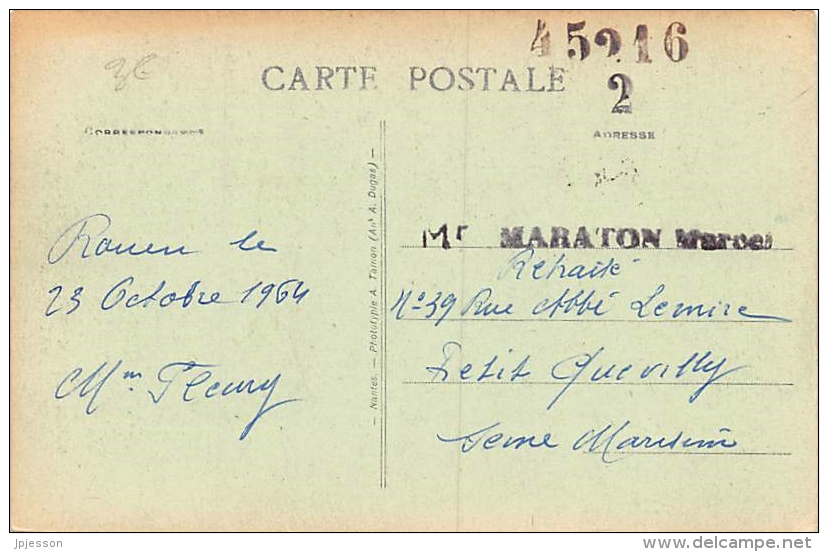 45216
2
3€
CARTE POSTALE
CORRESPONDANCE
ADRESSE
Mr MARATON Marcel
Rouen le
23 Octobre 1964
Mme Fleury
Retraité
N°39 Rue Abbé Lemire
Petit Quevilly
Seine Maritime
Nantes. — Phototypie A. Tainon (Ant A. Dugas) —
jpjesson
delcampe.net